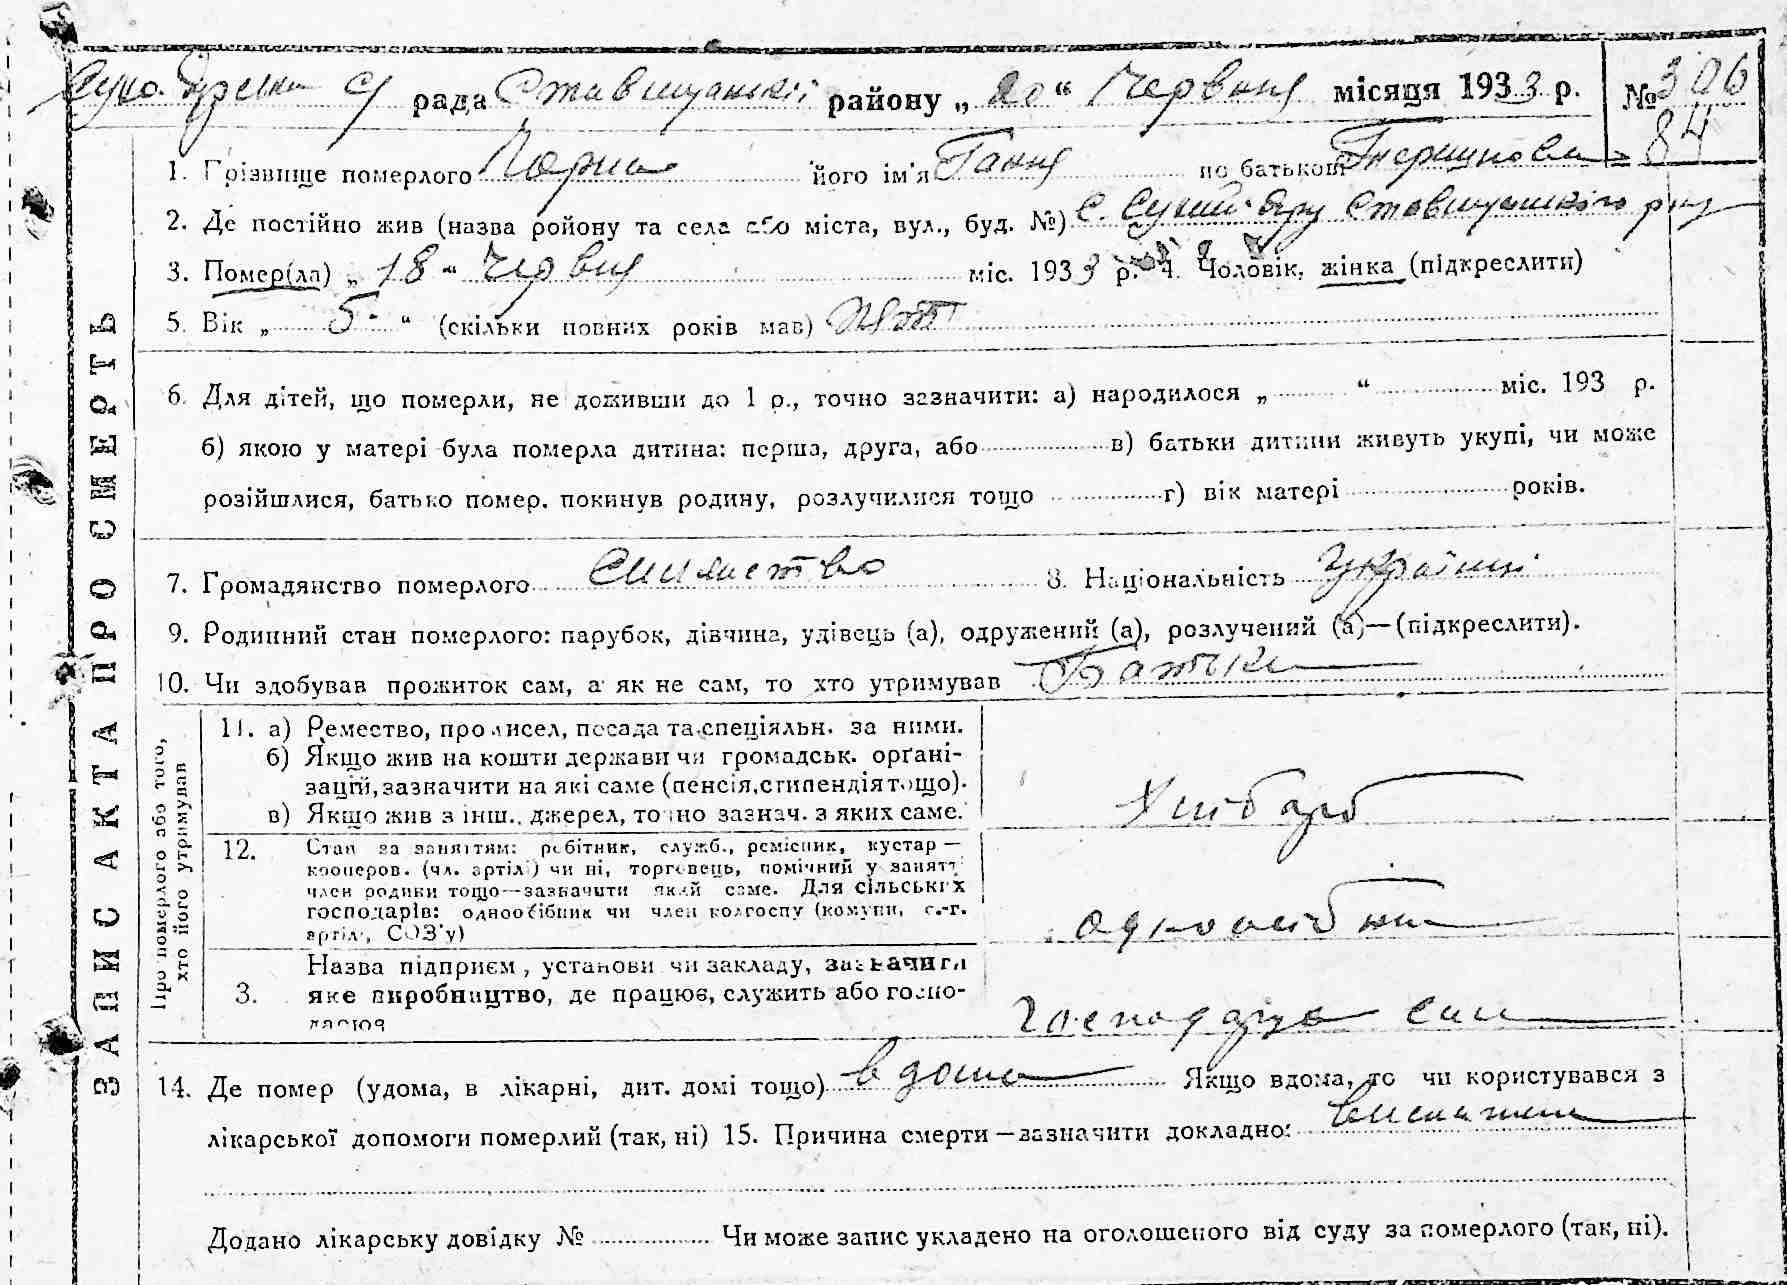 рада Ставищанської району „ 20 “ Червня місяця 1933 р. № 306
84
1. Прізвище померлого його ім'я Ганна по батькові
2. Де постійно жив (назва ройону та села або міста, вул., буд. №) с. Сухий-Яру Ставищанського р-ну
3. Помер(ла) „ 18 “ Червня міс. 1933 р. 4. Чоловік, жінка (підкреслити)
5. Вік „ 5 “ (скільки повних років мав) пять
6. Для дітей, що померли, не доживши до 1 р., точно зазначити: а) народилося „ “ міс. 193 р.
б) якою у матері була померла дитина: перша, друга, або в) батьки дитини живуть укупі, чи може
розійшлися, батько помер, покинув родину, розлучилися тощо г) вік матері років.
7. Громадянство померлого 8. Національність Українці
9. Родинний стан померлого: парубок, дівчина, удівець (а), одружений (а), розлучений (а)—(підкреслити).
10. Чи здобував прожиток сам, а як не сам, то хто утримував Батьки
ЗАПИС АКТА ПРО СМЕРТЬ
Про померлого або того,
хто його утримував
11. а) Ремество, промисел, посада та спеціяльн. за ними.
б) Якщо жив на кошти держави чи громадськ. орґані-
зацій, зазначити на які саме (пенсія, стипендія тощо).
в) Якщо жив з інш. джерел, точно зазнач. з яких саме.
Хлібороб
12. Стан за заняттям: робітник, служб., ремісник, кустар —
кооперов. (чл. артілі) чи ні, торговець, помічний у занятті
член родини тощо—зазначити який саме. Для сільських
господарів: одноосібник чи член колгоспу (комуни, с.-г.
артілі, СОЗ'у)
одноосібник
3. Назва підприєм, установи чи закладу, зазначити
яке виробництво, де працює, служить або госпо-
дарює
господарство
14. Де помер (удома, в лікарні, дит. домі тощо) вдома Якщо вдома, то чи користувався з
лікарської допомоги померлий (так, ні) 15. Причина смерти—зазначити докладно:
Додано лікарську довідку № Чи може запис укладено на оголошеного від суду за померлого (так, ні).